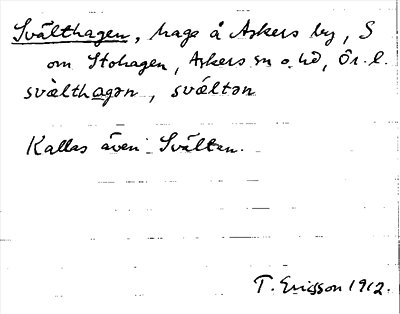 Svälthagen, hage å Askers by, S
om Stohagen, Askers sn o. hd, Ör. l.
svä̀lthagən, svä́ltən
Kallas även Svälten.
T. Ericsson 1912.